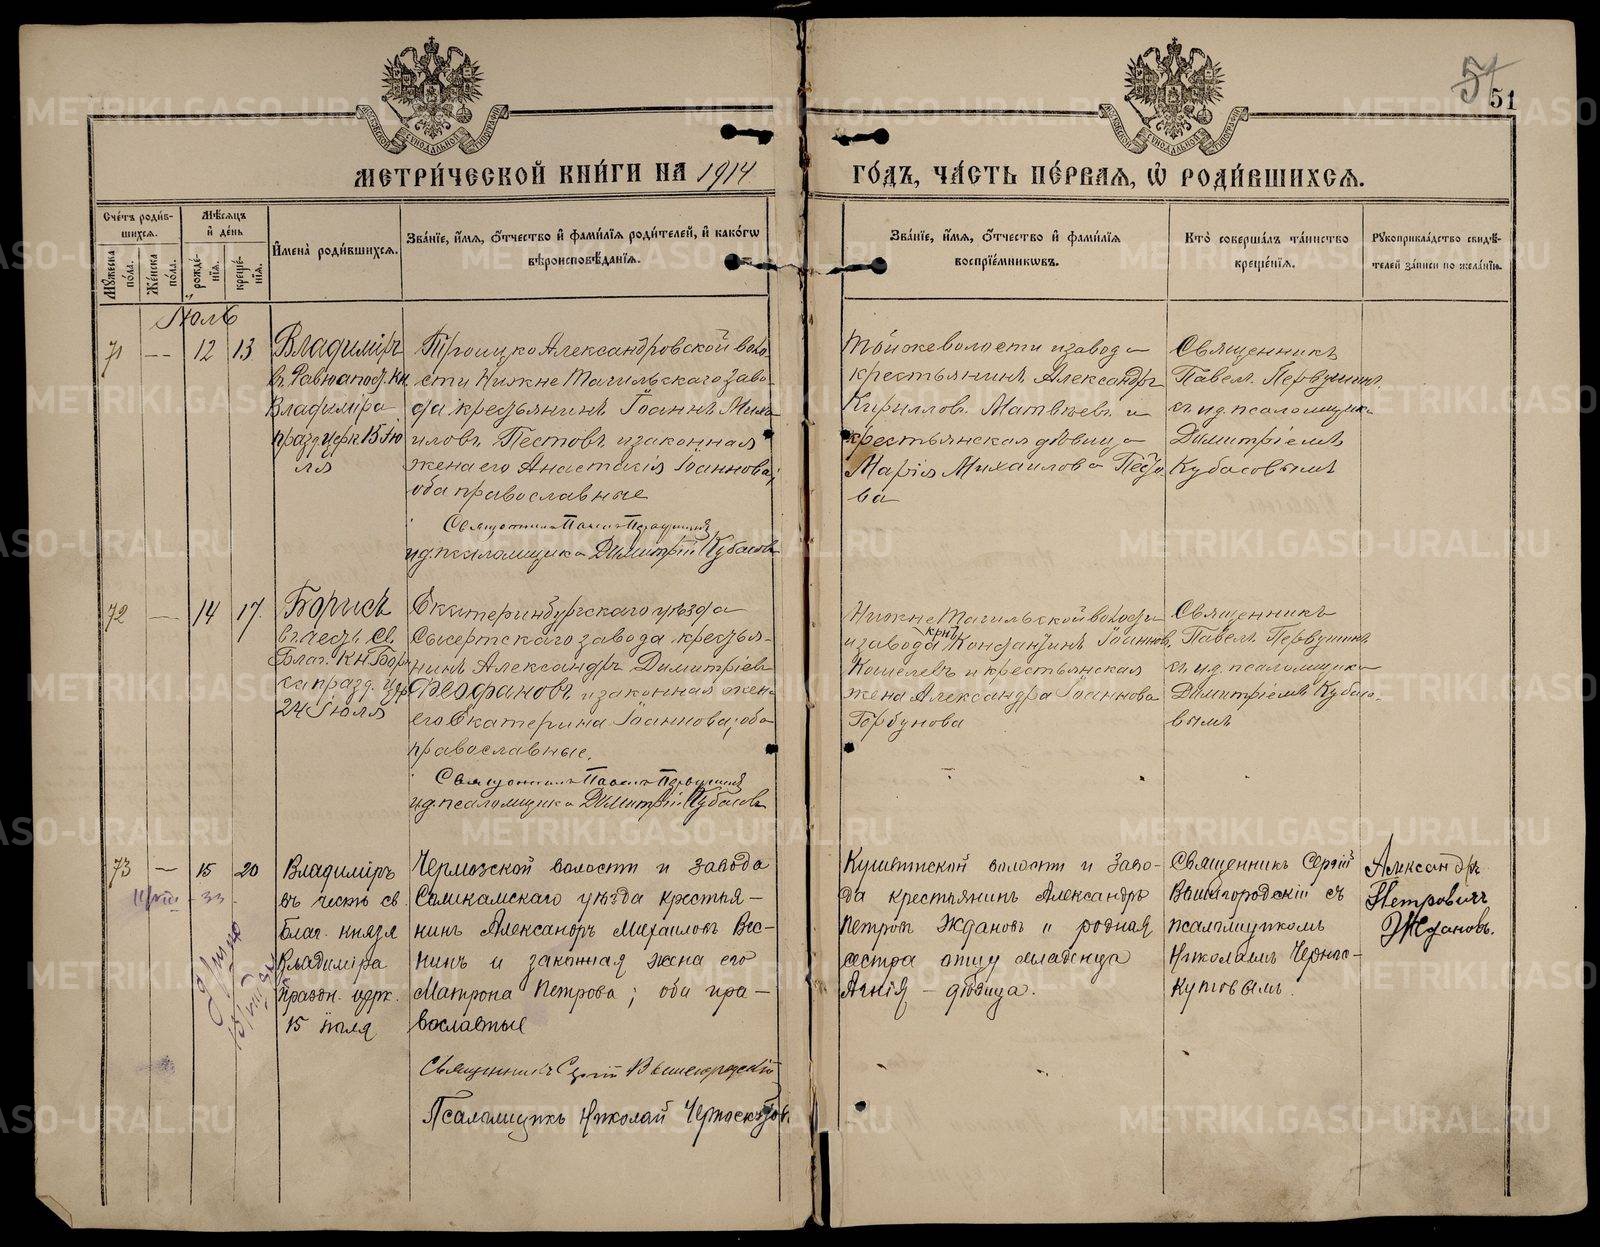 51
51
МЕТРИ́ЧЕСКОЙ КНИ́ГИ НА 1914 ГО́ДЪ, ЧА́СТЬ ПЕ́РВАЯ, Ѡ РОДИ́ВШИХСЯ.
МОСКОВСКОЙ СѴНОДАЛЬНОЙ ТИПОГРАФІИ
МОСКОВСКОЙ СѴНОДАЛЬНОЙ ТИПОГРАФІИ
Сче́тъ роди́вшихся.
Му́жеска по́ла.
Же́нска по́ла.
Мѣ́сяцъ и҆ де́нь
рожде́нїя.
креще́нїя.
И҆мена̀ роди́вшихся.
Зва́нїе, и҆́мя, ѻ҆́тчество и҆ фами́лїя роди́телей, и҆ како́гѡ
вѣроисповѣ́данїя.
Зва́нїе, и҆́мя, ѻ҆́тчество и҆ фами́лїя
воспрїе́мникѡвъ.
Кто̀ соверша́лъ та́инство
креще́нїя.
Рукоприкла́дство свидѣ́-
телей за́писи по жела́нїю.
Іюль
71 — 12 13
Владиміръ
Владиміра
празд. церк. 15 Ію
ля
Троицко Александровской воло-
сти Нижне Тагильскаго заво-
да крестьянинъ Іоаннъ Миха
иловъ Пестовъ и законная
жена его Анастасія Іоаннова;
оба православные
Священникъ Павелъ Первушинъ
и.д. псаломщика Димитрій Кубасовъ
Той же волости и завода
крестьянинъ Александръ
Кирилловъ Матвѣевъ и
крестьянская дѣвица
Марія Михаилова Песто
ва
Священникъ
Павелъ Первушинъ
съ и.д. псаломщика
Димитріемъ
Кубасовымъ
72 — 14 17.
Борисъ
въ честь св.
Благ. Кн. Бори
са празд. церк
24 Іюля
Екатеринбургскаго уѣзда
Сысертскаго завода крестья-
нинъ Александръ Димитріевъ
Феофановъ и законная жена
его Екатерина Іоаннова; оба
православные.
Священникъ Павелъ Первушинъ
и.д. псаломщика Димитрій Кубасовъ
Нижне Тагильской волости
и завода крнъ Константинъ Іоаннов.
Кошелевъ и крестьянская
жена Александра Іоаннова
Горбунова
Священникъ
Павелъ Первушинъ
съ и.д. псаломщика
Димитріемъ Кубасо-
вымъ
73 — 15 20
Владиміръ
въ честь св
благ. князя
Владиміра
праздн. церк.
15 іюля
Чермозской волости и завода
Соликамскаго уѣзда крестья-
нинъ Александръ Михаиловъ Вес-
нинъ и законная жена его
Матрона Петрова; оба пра-
вославные
Священникъ Сергій Вышегородскій
Псаломщикъ Николай Черноскутов.
Кушвинской волости и заво-
да крестьянинъ Александръ
Петровъ Ждановъ и родная
сестра отцу младенца
Агнія — дѣвица.
Священникъ Сергій
Вышегородскій съ
псаломщикомъ
Николаемъ Чернос-
кутовымъ.
Александръ
Петровичъ
Ждановъ.
METRIKI.GASO-URAL.RU